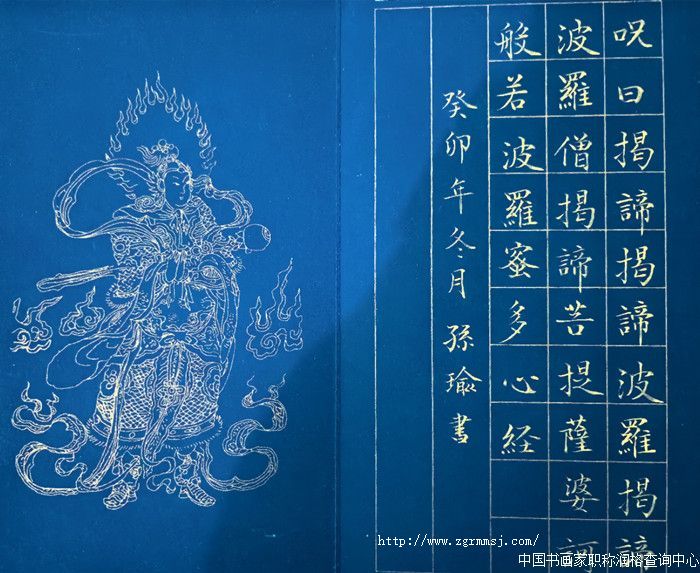 呪曰揭諦揭諦波羅揭諦
波羅僧揭諦菩提薩婆訶
般若波羅蜜多心経
癸卯年冬月 孫瑜書
http://www.zgrmmsj.com
中国书画家职称润格查询中心